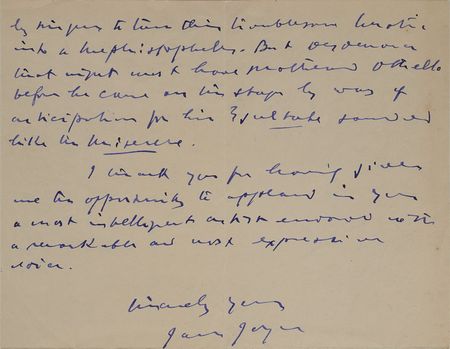 by singers to turn this troublesome
into a Mephistopheles. But Desdemona
that night must have smothered Othello
before he came on the stage by way of
anticipation for his Esultate sounded
like the Miserere.
I thank you for having given
me the opportunity to applaud in you
a most intelligent artist endowed with
a remarkable and most expressive
voice.
Sincerely yours
James Joyce